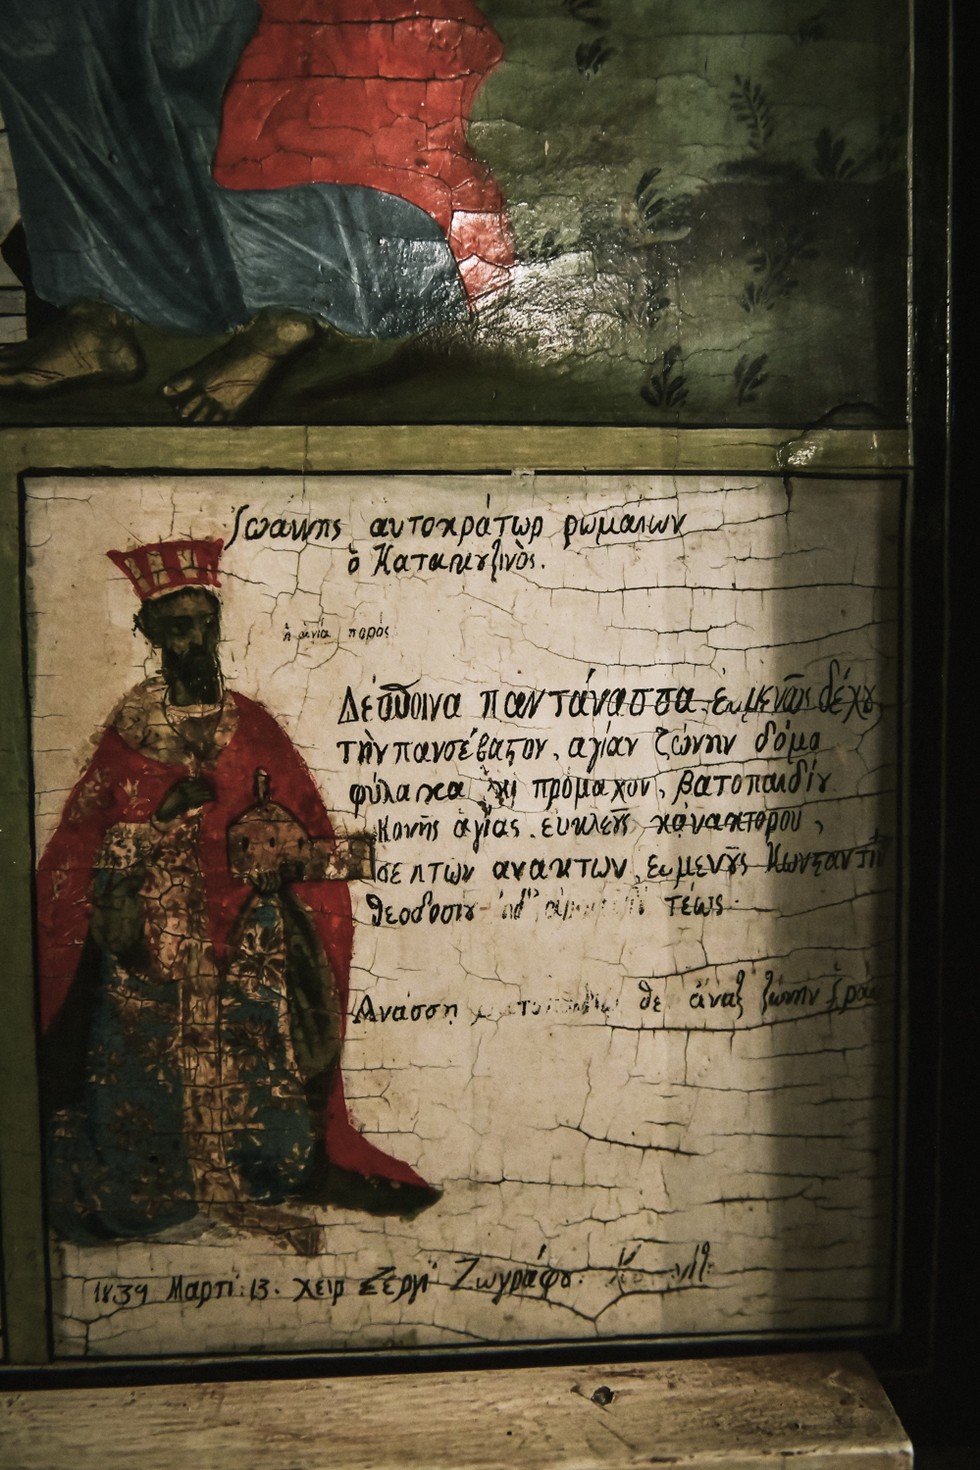 Ἰωάννης αυτοκράτωρ ρωμαίων
ὁ Κατακȣζινὸς.
ἡ ἁγία πορὸς
Δέσποινα παντάνασσα εὐμενῶς δέχȣ
τὴν πανσέβαςον, αγίαν ζώνην δόμȣ
φύλακα πρόμαχον, βατοπαιδίȣ
Κοινῆς ἁγίας, ευκλεȣς
σεπτῶν ανακτων, ευμενȣς Κωνςαντί
θεοδοσίȣ τέως.
Ανάσση θε ἄναξ ζώνην
1839 Μαρτί: 13. χειρ Ζεργί Ζωγράφȣ.